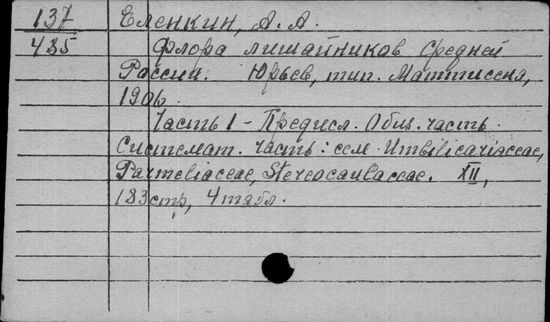 137 Еленкин, А. А.
485 Флора лишайников Средней
России. Юрьев, тип. Маттисена,
1906.
Часть 1 - Предисл. Общ. часть.
Системат. часть: сем. Umbilicariaceae,
Parmeliaceae, Stereocaulaceae. XII,
183 стр, 4 табл.